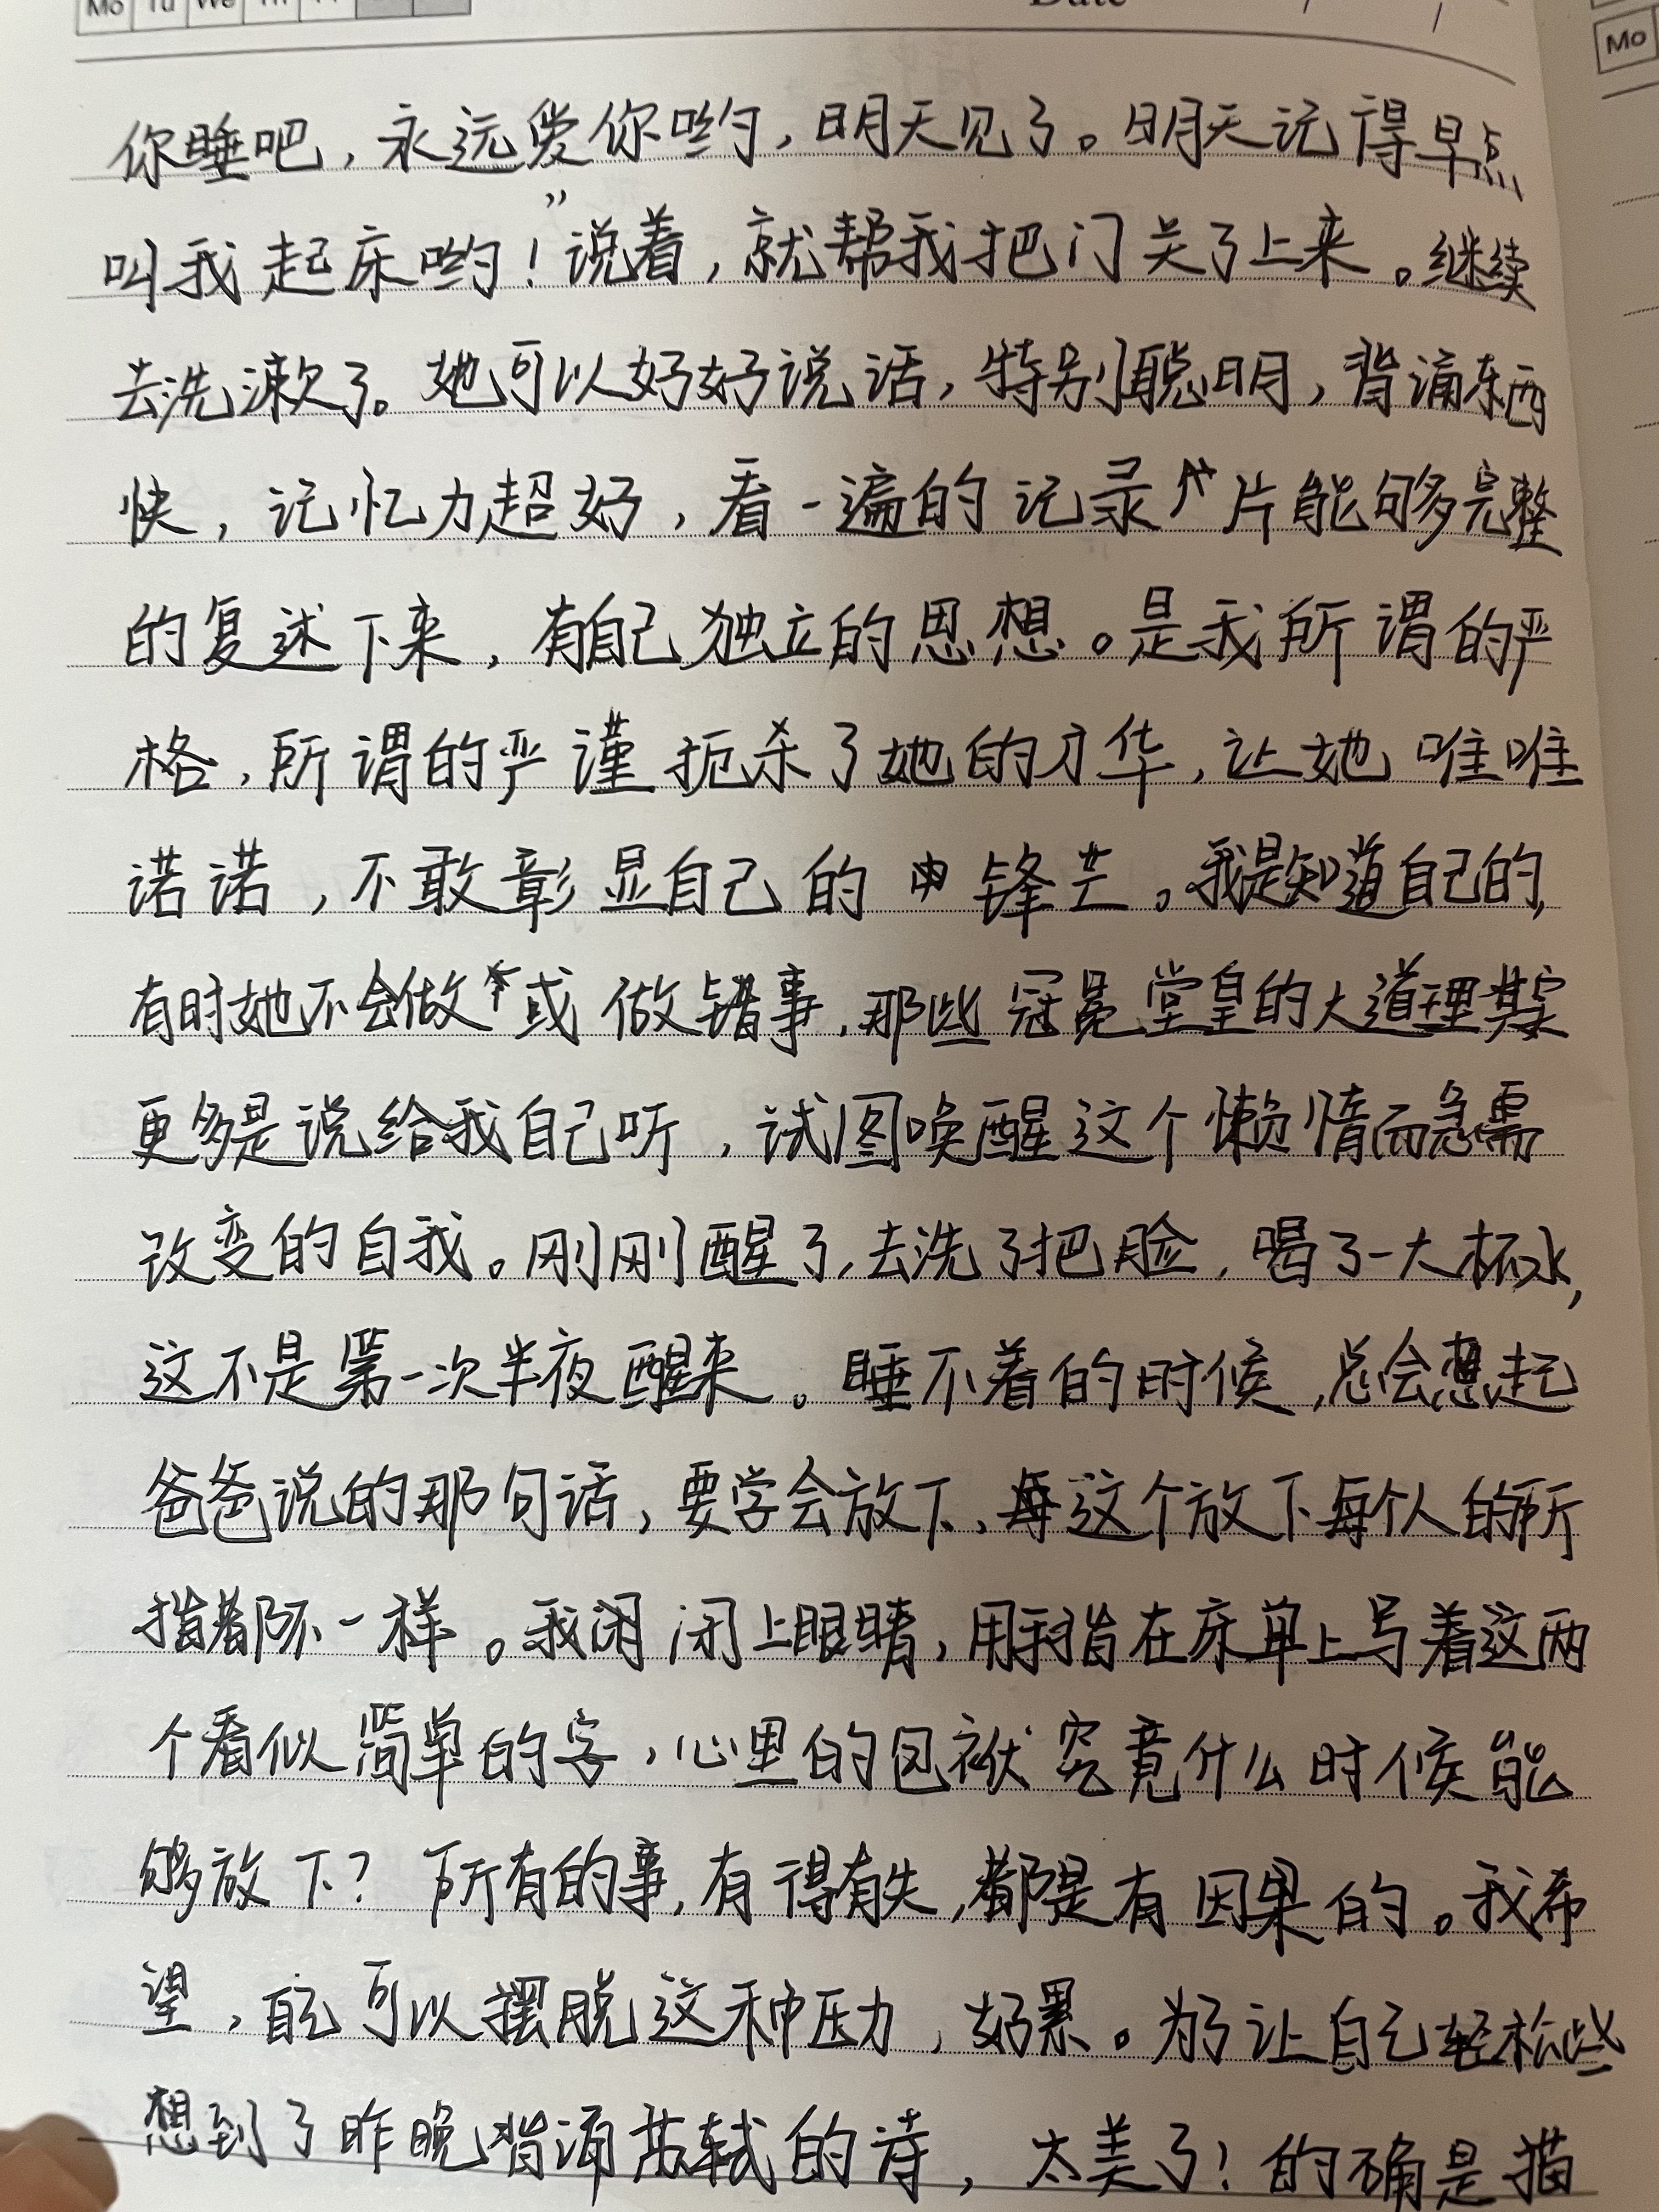 Mo Tu We Th Fr
Date
Mo
你睡吧，永远爱你哟，明天见了。明天记得早点
叫我起床哟！”说着，就帮我把门关了上来。继续
去洗漱了。她可以好好说话，特别聪明，背诵东西
快，记忆力超好，看一遍的记录片能够完整
的复述下来，有自己独立的思想。是我所谓的严
格，所谓的严谨扼杀了她的才华，让她唯唯
诺诺，不敢彰显自己的锋芒。我是知道自己的，
有时她不会做或做错事，那些冠冕堂皇的大道理其实
更多是说给我自己听，试图唤醒这个懒惰而急需
改变的自我。刚刚醒了，去洗了把脸，喝了一大杯水，
这不是第一次半夜醒来。睡不着的时候，总会想起
爸爸说的那句话，要学会放下，每这个放下每个人的所
指都不一样。我闭闭上眼睛，用手指在床单上写着这两
个看似简单的字，心里的包袱究竟什么时候能
够放下？所有的事，有得有失，都是有因果的。我希
望，自己可以摆脱这种压力，好累。为了让自己轻松些
想到了昨晚背诵苏轼的诗，太美了！的确是描